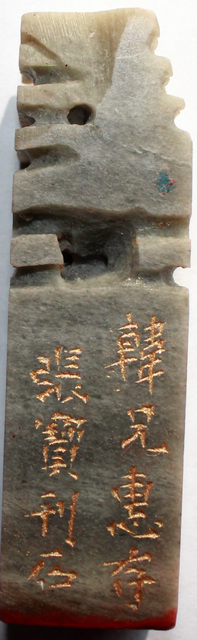 韓兄惠存
張寶刊石